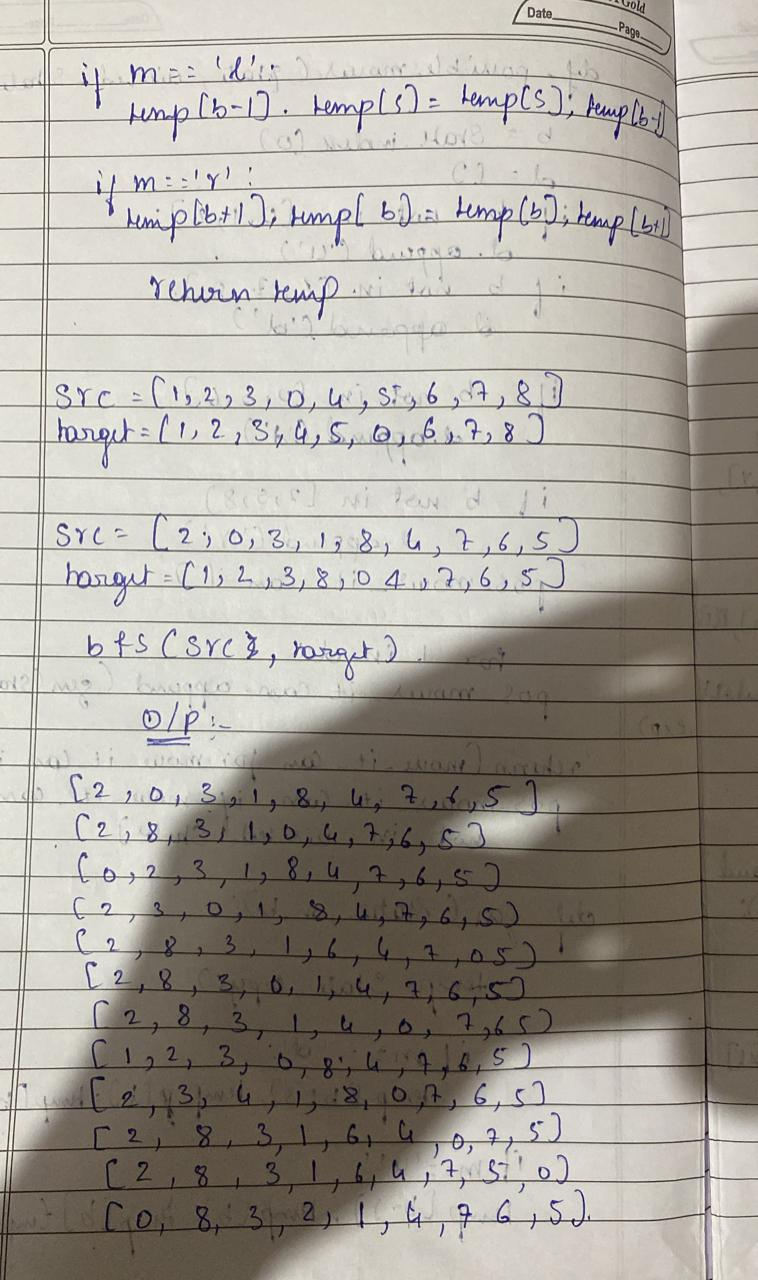 Gold
Date
Page
if m == 'l':
temp[b-1]. temp[s] = temp[s]; temp[b-1]
if m == 'r':
temp[b+1]; temp[b] = temp[b]; temp[b+1]
return temp.
src = [1, 2, 3, 0, 4, 5, 6, 7, 8]
target = [1, 2, 3, 4, 5, 0, 6, 7, 8]
src = [2, 0, 3, 1, 8, 4, 7, 6, 5]
target = [1, 2, 3, 8, 0 4, 7, 6, 5]
bfs (src, target).
O/P :-
[2, 0, 3, 1, 8, 4, 7, 6, 5],
[2, 8, 3, 1, 0, 4, 7, 6, 5]
[0, 2, 3, 1, 8, 4, 7, 6, 5]
[2, 3, 0, 1, 8, 4, 7, 6, 5]
[2, 8, 3, 1, 6, 4, 7, 0 5]
[2, 8, 3, 0, 1, 4, 7, 6, 5]
[2, 8, 3, 1, 4, 0, 7, 6 5]
[1, 2, 3, 0, 8, 4, 7, 6, 5]
[2, 3, 4, 1, 8, 0, 7, 6, 5]
[2, 8, 3, 1, 6, 4, 0, 7, 5]
[2, 8, 3, 1, 6, 4, 7, 5, 0]
[0, 8, 3, 2, 1, 4, 7 6, 5].